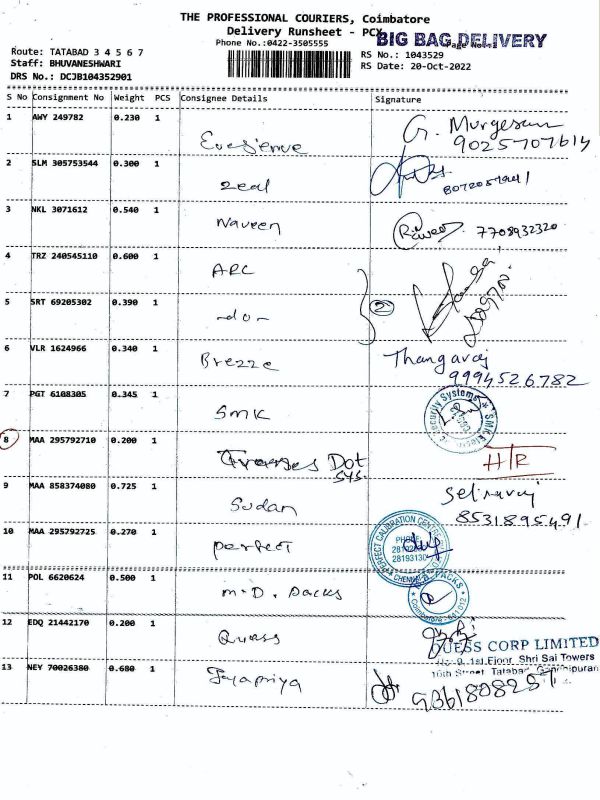 THE PROFESSIONAL COURIERS, Coimbatore
Delivery Runsheet - PCX
BIG BAG DELIVERY
Phone No.:0422-3505555
Route: TATABAD 3 4 5 6 7
Staff: BHUVANESHWARI
DRS No.: DCJB104352901
RS No.: 1043529
RS Date: 20-Oct-2022
S No Consignment No Weight PCS Consignee Details Signature
1 AWY 249782 0.230 1 G. Murgesan
9025707614
2 SLM 305753544 0.300 1 Zeal
3 NKL 3071612 0.540 1 Naveen 7708932320
4 TRZ 240545110 0.600 1 ARC
5 SRT 69205302 0.390 1 -do- 2
6 VLR 1624966 0.340 1 Brezze Thangaraj
9994526782
7 PGT 6108305 0.345 1 SMK
8 MAA 295792710 0.200 1 Dot HTR
sys.
9 MAA 858374080 0.725 1 Sudan Selvaraj
8531895491
10 MAA 295792725 0.270 1 perfect
11 POL 6620624 0.500 1 M.D. Packs
12 EDQ 21442170 0.200 1 Quess
QUESS CORP LIMITED
1st Floor, Shri Sai Towers
Street, Tatabad
13 NEY 70026380 0.680 1 Jayapriya